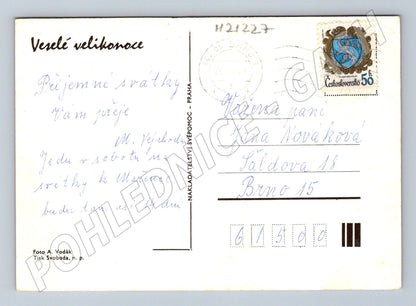 H21227
Veselé velikonoce
Příjemné svátky
Vám přeje
M.
Jedu v sobotu na
svátky k
budu tam
Foto A. Vodák
Tisk Svoboda, n. p.
NAKLADATELSTVÍ SVÉPOMOC - PRAHA
Československo 50 h
Vážená paní
Nováková
Šaldova 18
Brno 15
61500
POHLEDNICE GASH